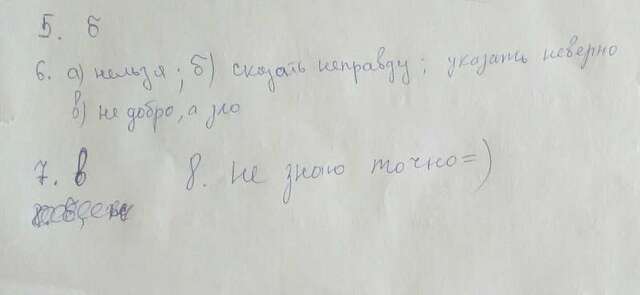 5. б
6. а) нельзя; б) сказать неправду; указать неверно
в) не добро, а зло
7. в 8. не знаю точно=)